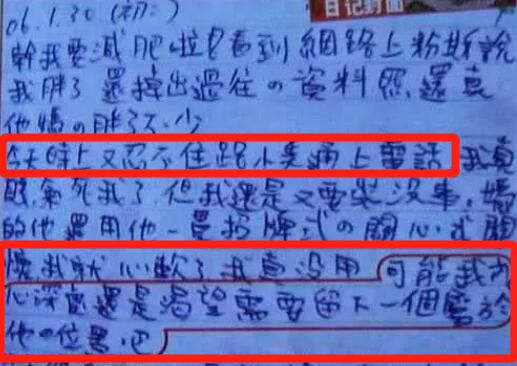 日记封面
06.1.30 (初二)
幹我要減肥啦!看到網路上粉斯說
我胖了 還撐出過往の資料照 還真
他媽の胖了不少
今天晚上又忍不住跟小 通上電話 我真
氣死我了 但我還是又要裝沒事 媽
的他還用他一貫招牌式の關心 式關
懷 我就心軟了 我真沒用 可能我內
心深處還是渴望需要留下一個屬於
他の位置吧